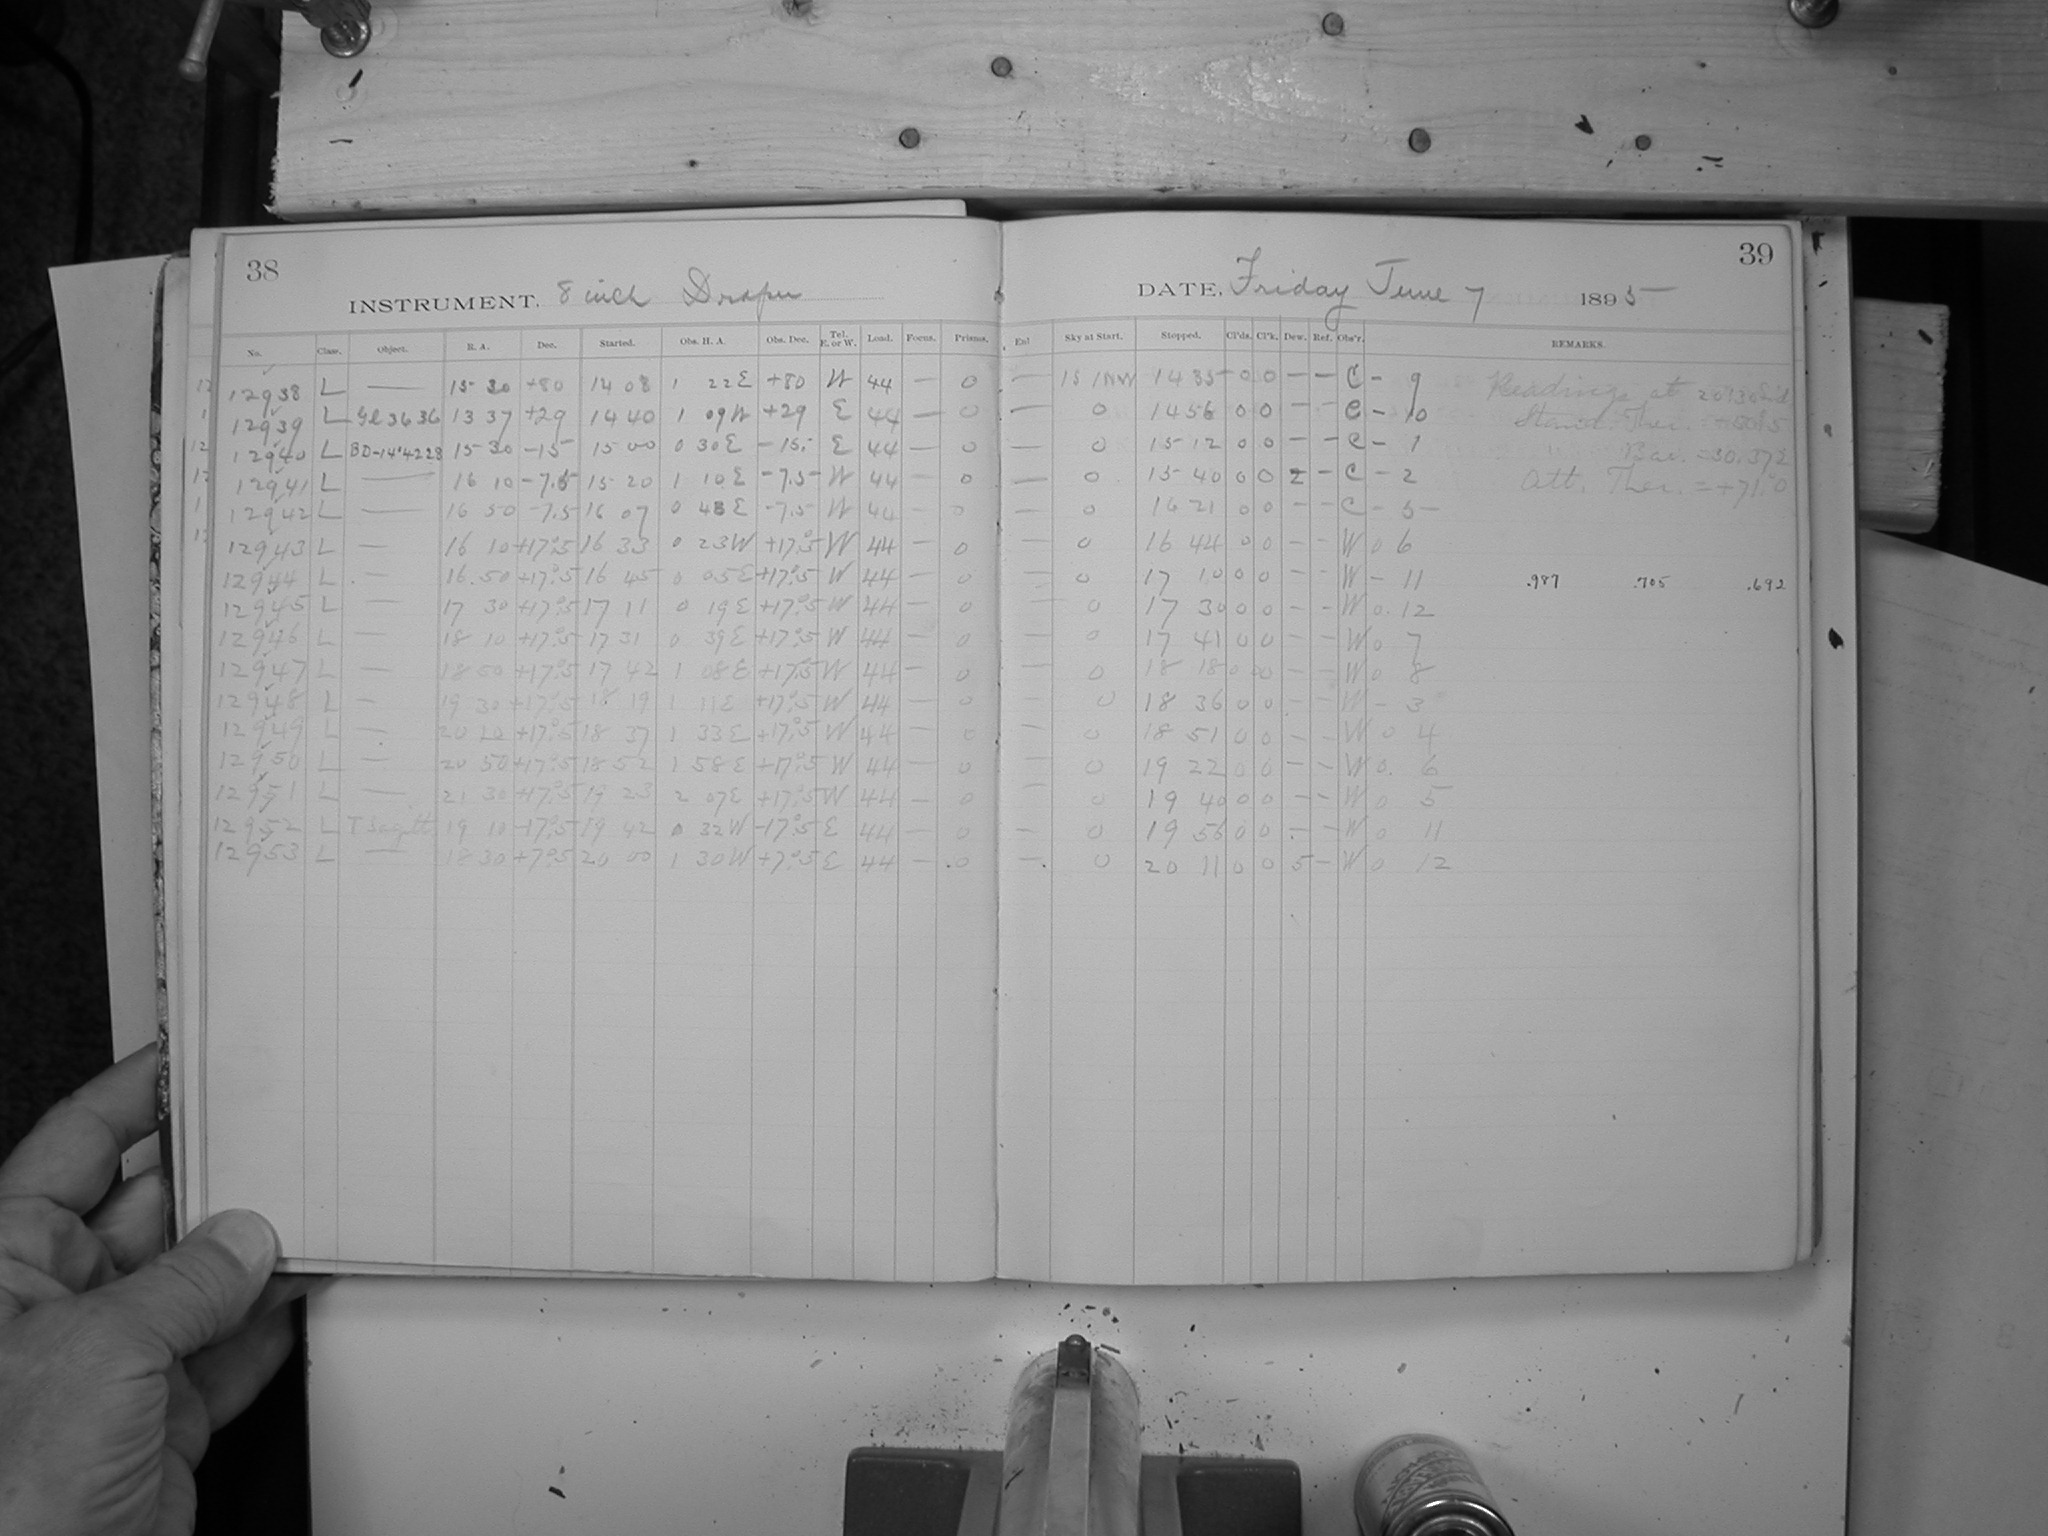 38
INSTRUMENT, 8 inch Draper
No. Class. Object. R. A. Dec. Started. Obs. H. A. Obs. Dec. Tel. E. or W. Load. Focus. Prisms.
12938 L — 15 30 +80 14 08 1 22 E +80 W 44 — 0
12939 L Gl 3636 13 37 +29 14 40 1 09 W +29 E 44 — 0
12940 L BD-14°4228 15 30 -15 15 00 0 30 E -15 E 44 — 0
12941 L — 16 10 -7.5 15 20 1 10 E -7.5 W 44 — 0
12942 L — 16 50 -7.5 16 07 0 43 E -7.5 W 44 — 0
12943 L — 16 10 +17°.5 16 33 0 23 W +17°.5 W 44 — 0
12944 L — 16 50 +17°.5 16 45 0 05 E +17°.5 W 44 — 0
12945 L — 17 30 +17°.5 17 11 0 19 E +17°.5 W 44 — 0
12946 L — 18 10 +17°.5 17 31 0 39 E +17°.5 W 44 — 0
12947 L — 18 50 +17°.5 17 42 1 08 E +17°.5 W 44 — 0
12948 L — 19 30 +17°.5 18 19 1 11 E +17°.5 W 44 — 0
12949 L — 20 10 +17°.5 18 37 1 33 E +17°.5 W 44 — 0
12950 L — 20 50 +17°.5 18 52 1 58 E +17°.5 W 44 — 0
12951 L — 21 30 +17°.5 19 23 2 07 E +17°.5 W 44 — 0
12952 L T Sagitt 19 10 -17°.5 19 42 0 32 W -17°.5 E 44 — 0
12953 L — 18 30 +7°.5 20 00 1 30 W +7°.5 E 44 — 0
39
DATE, Friday June 7 1895
Enl Sky at Start. Stopped. Cl'ds. Cl'k. Dew. Ref. Obs'r. REMARKS.
— 15 1 NW 14 35 0 0 — — C — 9 Readings at 20h30m Sid
— 0 14 56 0 0 — — C — 10 Stand. Ther. = +50°.5
— 0 15 12 0 0 — — C — 1 " Bar. = 30.372
— 0 15 40 0 0 2 — C — 2 Att. Ther. = +71°.0
— 0 16 21 0 0 — — C — 5
— 0 16 44 0 0 — — W 0 6
— 0 17 10 0 0 — — W — 11 .987 .705 .692
— 0 17 30 0 0 — — W 0 12
— 0 17 41 0 0 — — W 0 7
— 0 18 18 0 0 — — W 0 8
— 0 18 36 0 0 — — W — 3
— 0 18 51 0 0 — — W 0 4
— 0 19 22 0 0 — — W 0 6
— 0 19 40 0 0 — — W 0 5
— 0 19 56 0 0 — — W 0 11
— 0 20 11 0 0 5 — W 0 12